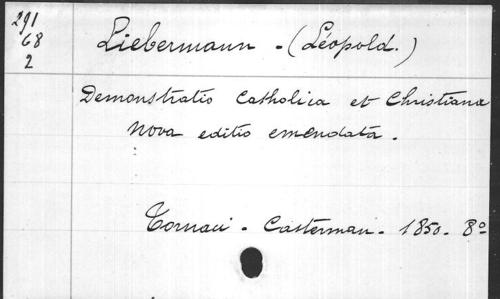 291
68
2
Liebermann - (Léopold.)
Demonstratio Catholica et Christiana
Nova editio emendata.
Tornaci - Casterman - 1850 - 8º